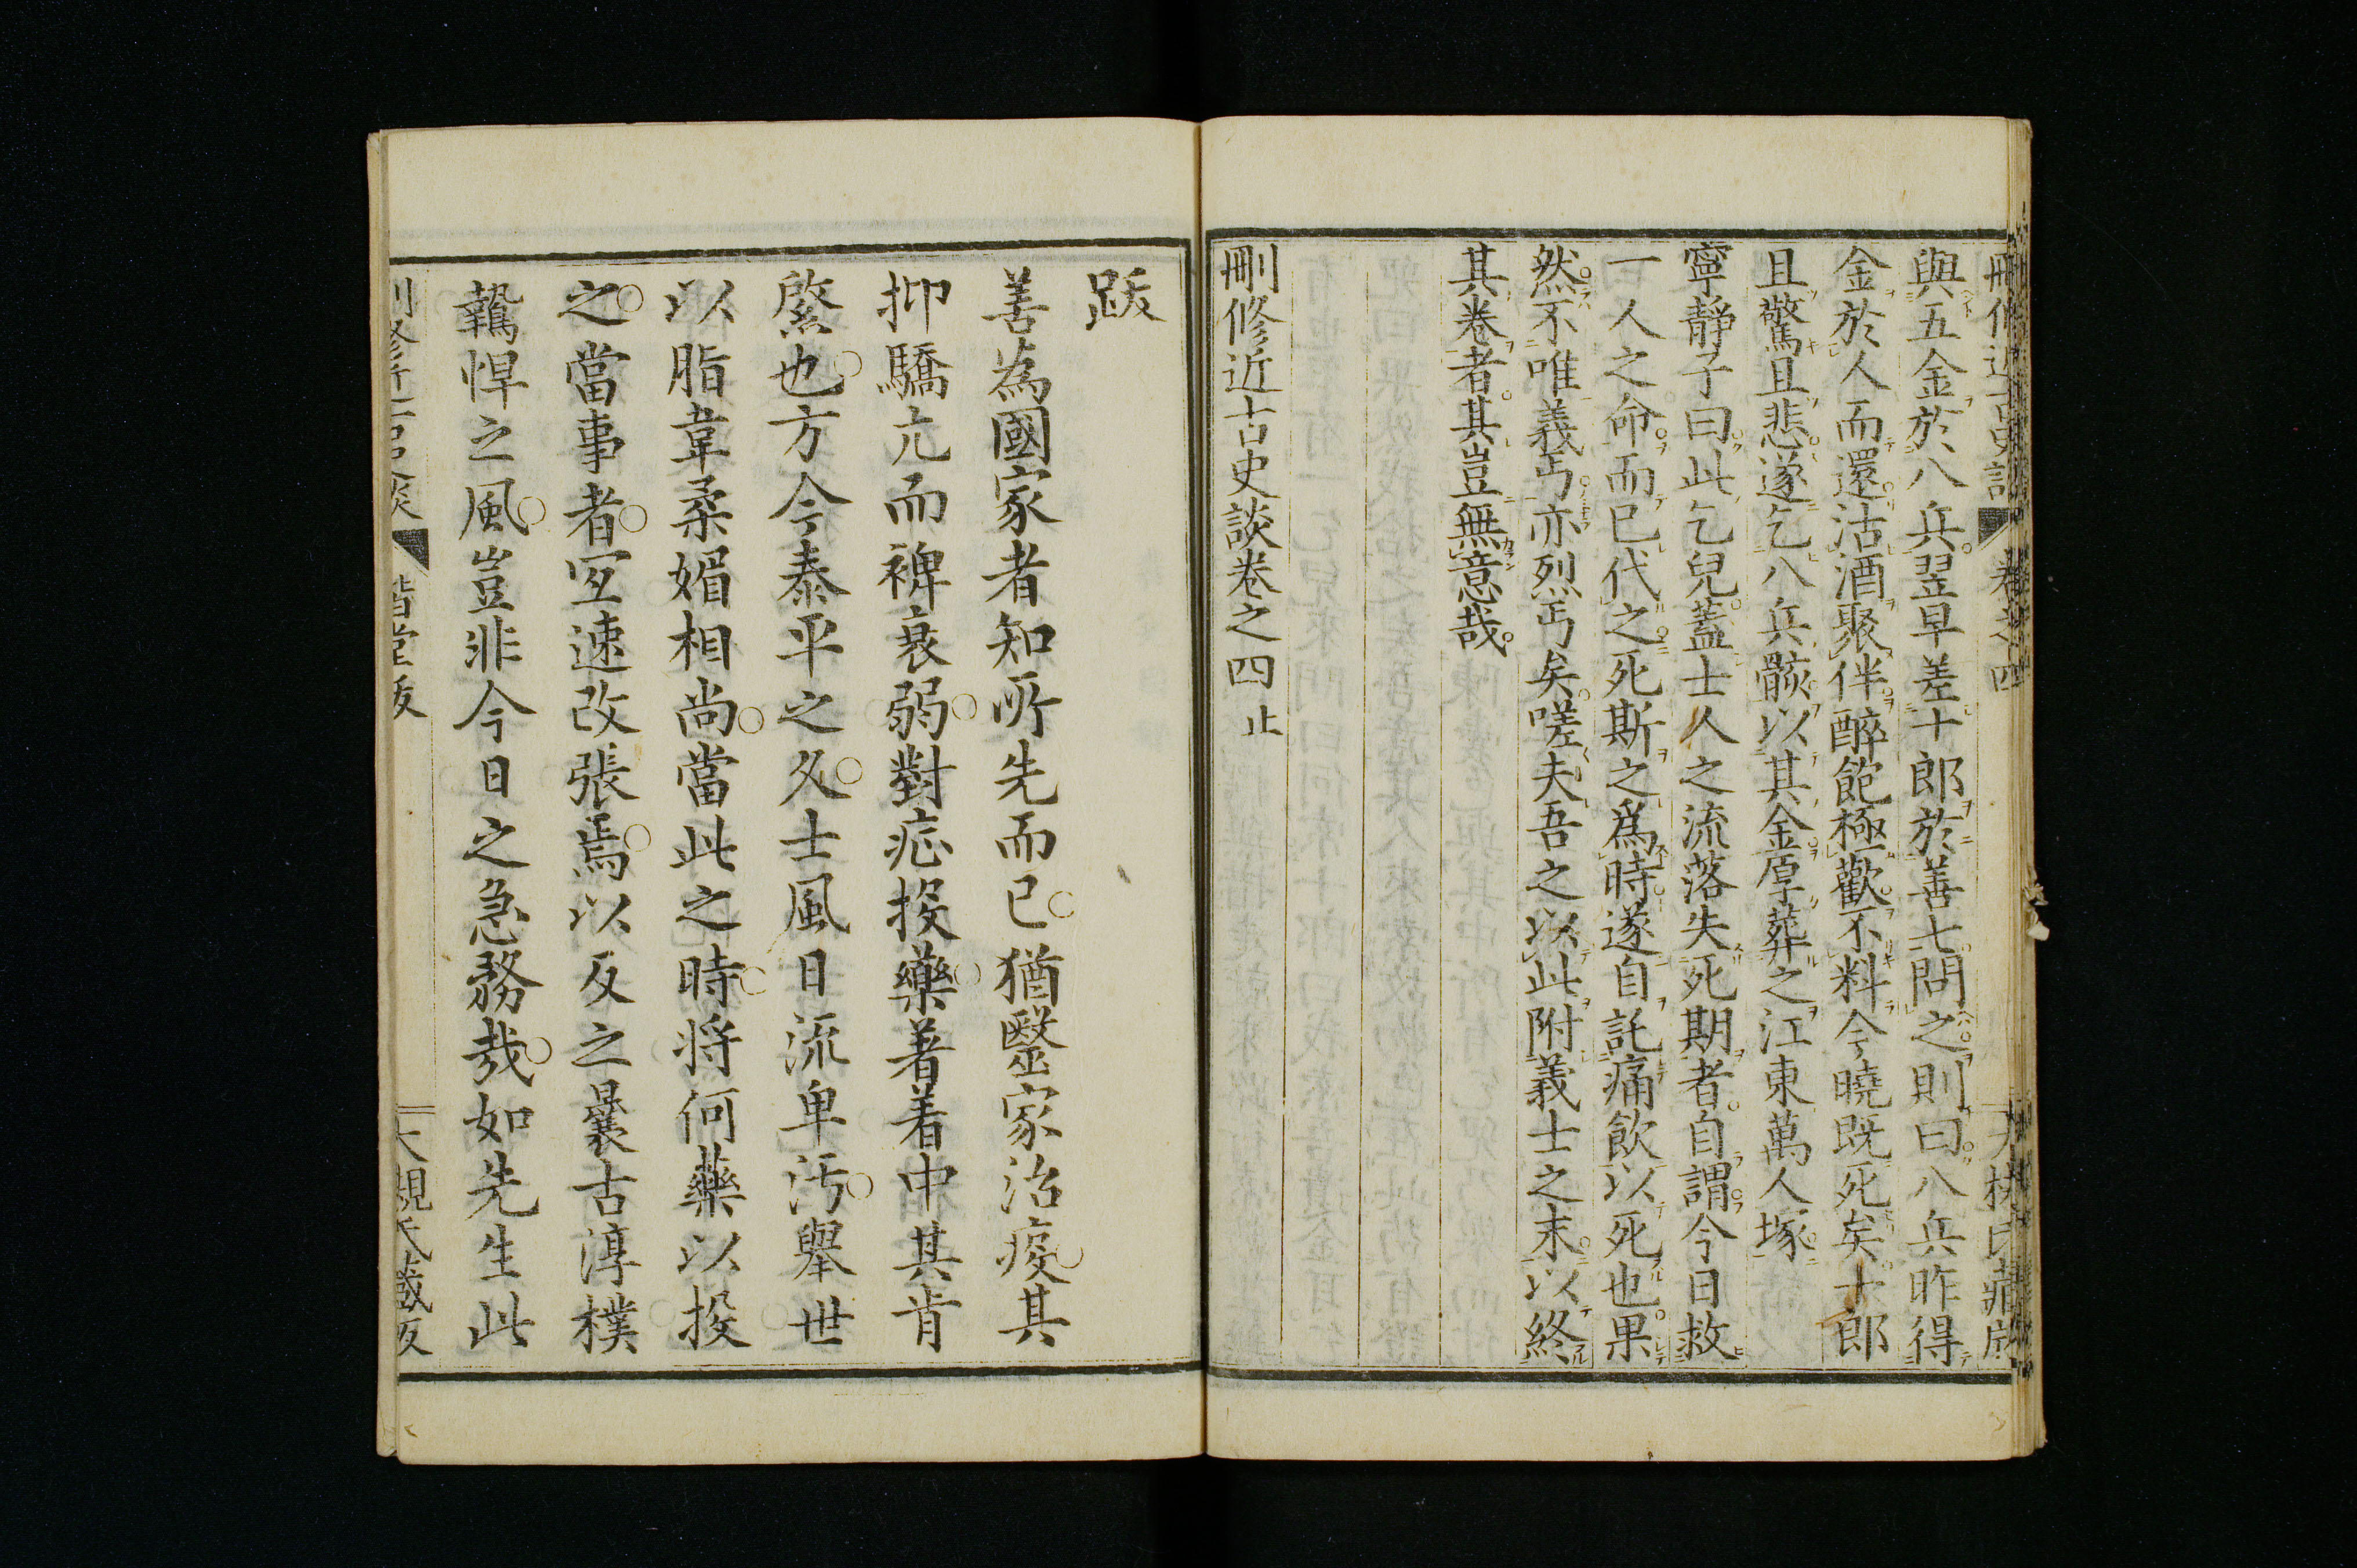 與五金於八兵翌早差十郎於善七問之則曰八兵昨得
金於人而還沽酒聚伴醉飽極歡不料今曉既死矣十郎
且驚且悲遂乞八兵骸以其金厚葬之江東萬人塚
寧靜子曰此乞兒蓋士人之流落失死期者自謂今日救
一人之命而已代之死斯之爲時遂自託痛飲以死也果
然不唯義丐亦烈丐矣嗟夫吾之以此附義士之末以終
其卷者其豈無意哉
刪修近古史談卷之四 止
跋
善為國家者知所先而已猶醫家治疾其
抑驕亢而裨衰弱對症投藥著着中其肯
綮也方今泰平之久士風日流卑汚舉世
以脂韋柔媚相尚當此之時將何藥以投
之當事者宜速改張焉以反之曩古淳樸
鷙悍之風豈非今日之急務哉如先生此